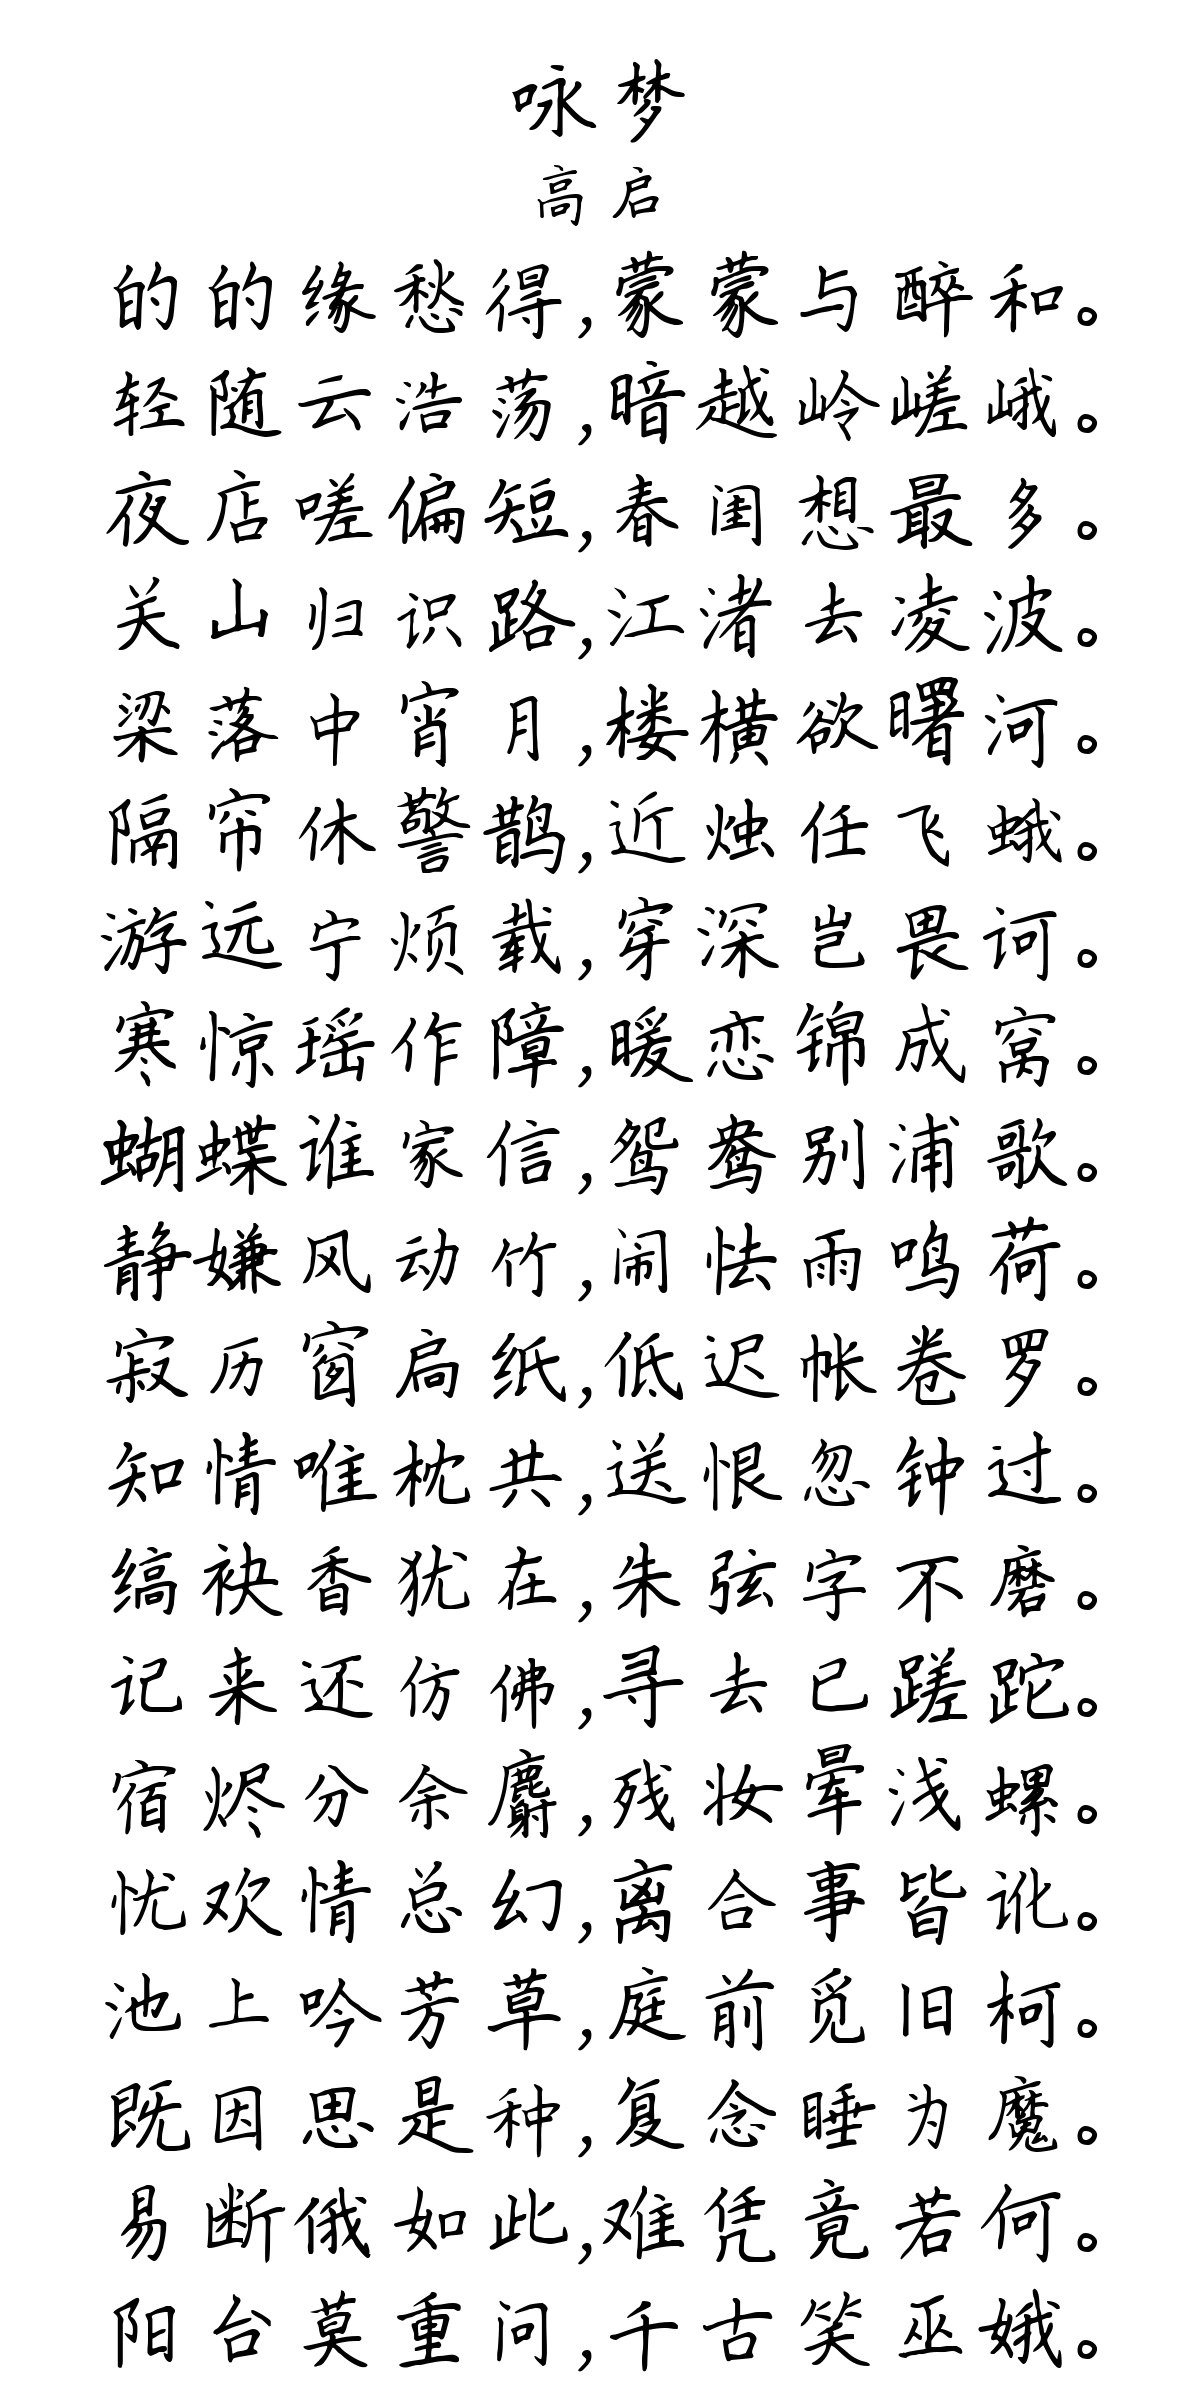 咏梦
高启
的的缘愁得,蒙蒙与醉和。
轻随云浩荡,暗越岭嵯峨。
夜店嗟偏短,春闺想最多。
关山归识路,江渚去凌波。
梁落中宵月,楼横欲曙河。
隔帘休警鹊,近烛任飞蛾。
游远宁烦载,穿深岂畏诃。
寒惊瑶作障,暖恋锦成窝。
蝴蝶谁家信,鸳鸯别浦歌。
静嫌风动竹,闹怯雨鸣荷。
寂历窗扃纸,低迟帐卷罗。
知情唯枕共,送恨忽钟过。
缟袂香犹在,朱弦字不磨。
记来还仿佛,寻去已蹉跎。
宿烬分余麝,残妆晕浅螺。
忧欢情总幻,离合事皆讹。
池上吟芳草,庭前觅旧柯。
既因思是种,复念睡为魔。
易断俄如此,难凭竟若何。
阳台莫重问,千古笑巫娥。